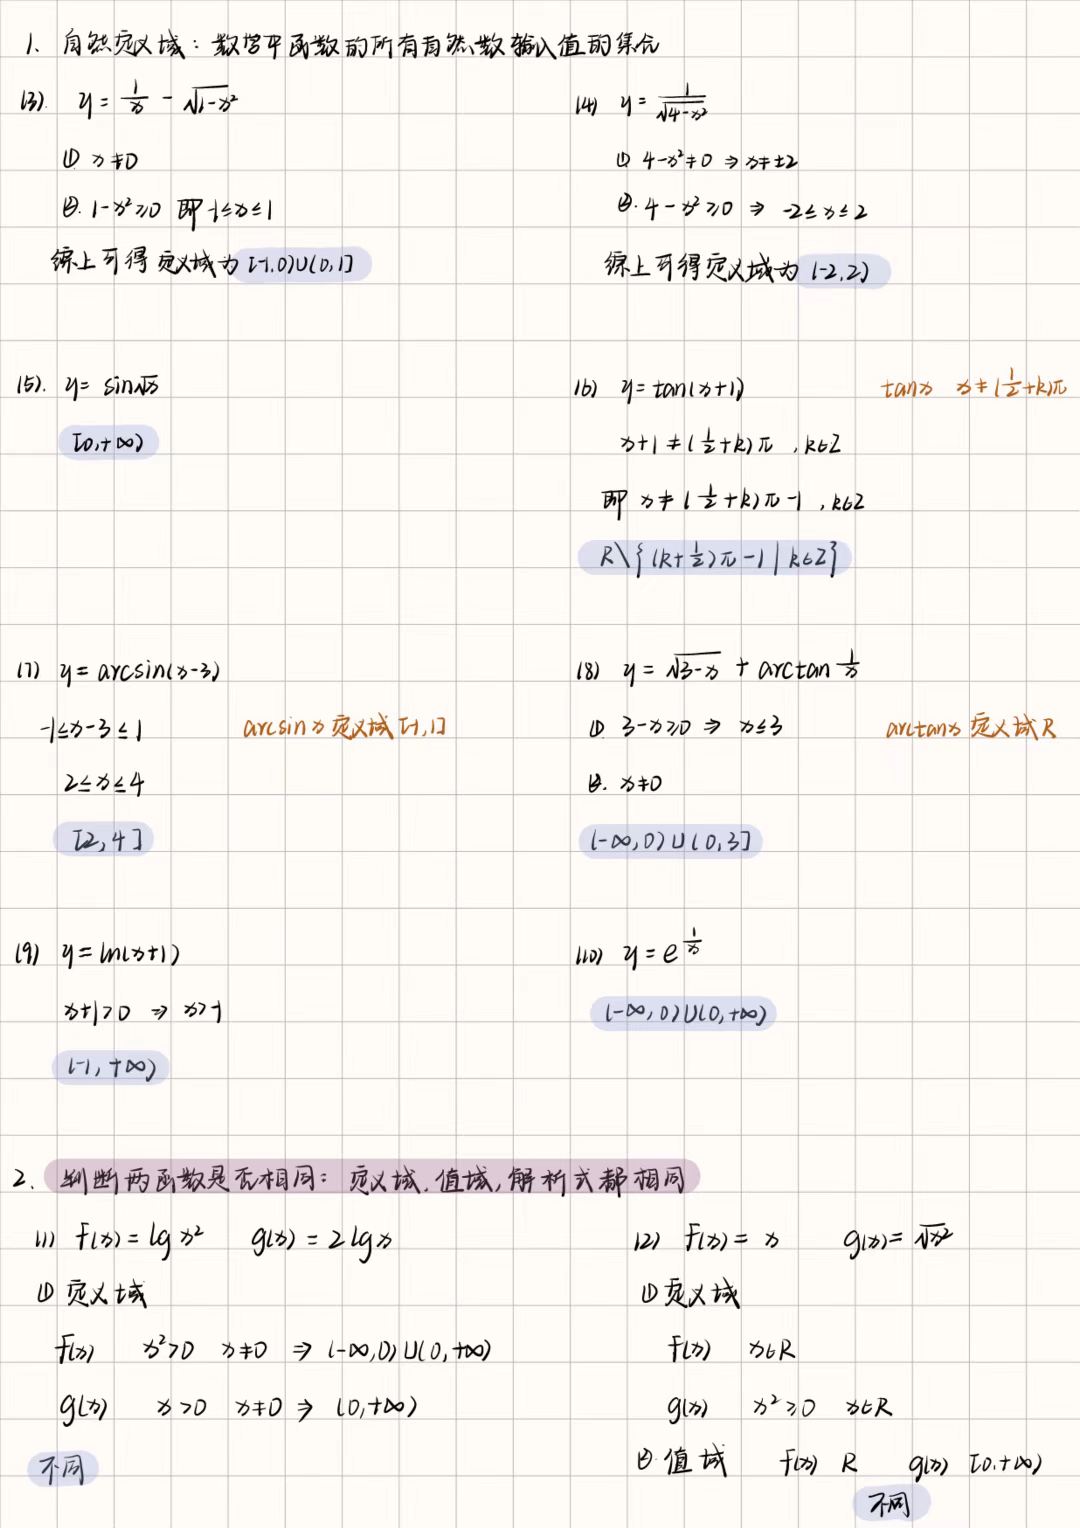 1. 自然定义域：数学中函数的所有有自然数输入值的集合
(3). y = 1/x - √(1-x²)
① x≠0
②. 1-x²≥0 即 -1≤x≤1
综上可得 定义域为 [-1,0)∪(0,1]
(4) y = 1/√(4-x²)
① 4-x²≠0 ⇒ x≠±2
②. 4-x²≥0 ⇒ -2≤x≤2
综上可得定义域为 (-2,2)
(5). y = sin√x
[0,+∞)
(6) y = tan(x+1) tanx x≠(1/2+k)π
x+1≠(1/2+k)π , k∈Z
即 x≠(1/2+k)π-1 , k∈Z
R\{(k+1/2)π-1 | k∈Z}
(7) y = arcsin(x-3)
-1≤x-3≤1 arcsinx 定义域 [-1,1]
2≤x≤4
[2,4]
(8) y = √(3-x) + arctan 1/x
① 3-x≥0 ⇒ x≤3 arctanx 定义域 R
②. x≠0
(-∞,0)∪(0,3]
(9) y = ln(x+1)
x+1>0 ⇒ x>-1
(-1,+∞)
(10) y = e^(1/x)
(-∞,0)∪(0,+∞)
2. 判断两函数是否相同：定义域、值域，解析式都相同
(1) f(x) = lg x² g(x) = 2lgx
① 定义域
f(x) x²>0 x≠0 ⇒ (-∞,0)∪(0,+∞)
g(x) x>0 x≠0 ⇒ (0,+∞)
不同
(2) f(x) = x g(x) = √x²
① 定义域
f(x) x∈R
g(x) x²≥0 x∈R
② 值域 f(x) R g(x) [0,+∞)
不同